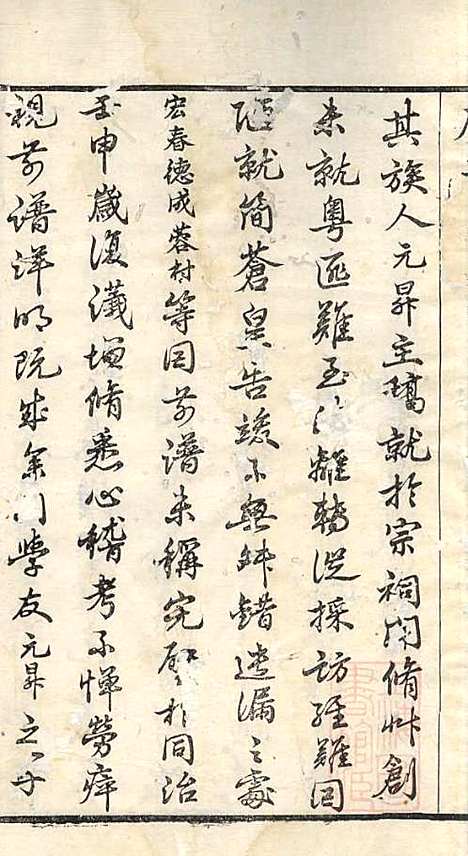 其族人元昇主璚就於宗祠内脩艸創
未就粤匪難至流離轉徙採訪維難因
陋就簡蒼皇告竣不無舛錯遺漏之處
宏春德成蓉村等因前譜未稱完璧於同治
壬申歲復議増脩悉心稽考不憚勞瘁
視前譜詳明既成余同學友元昇之子